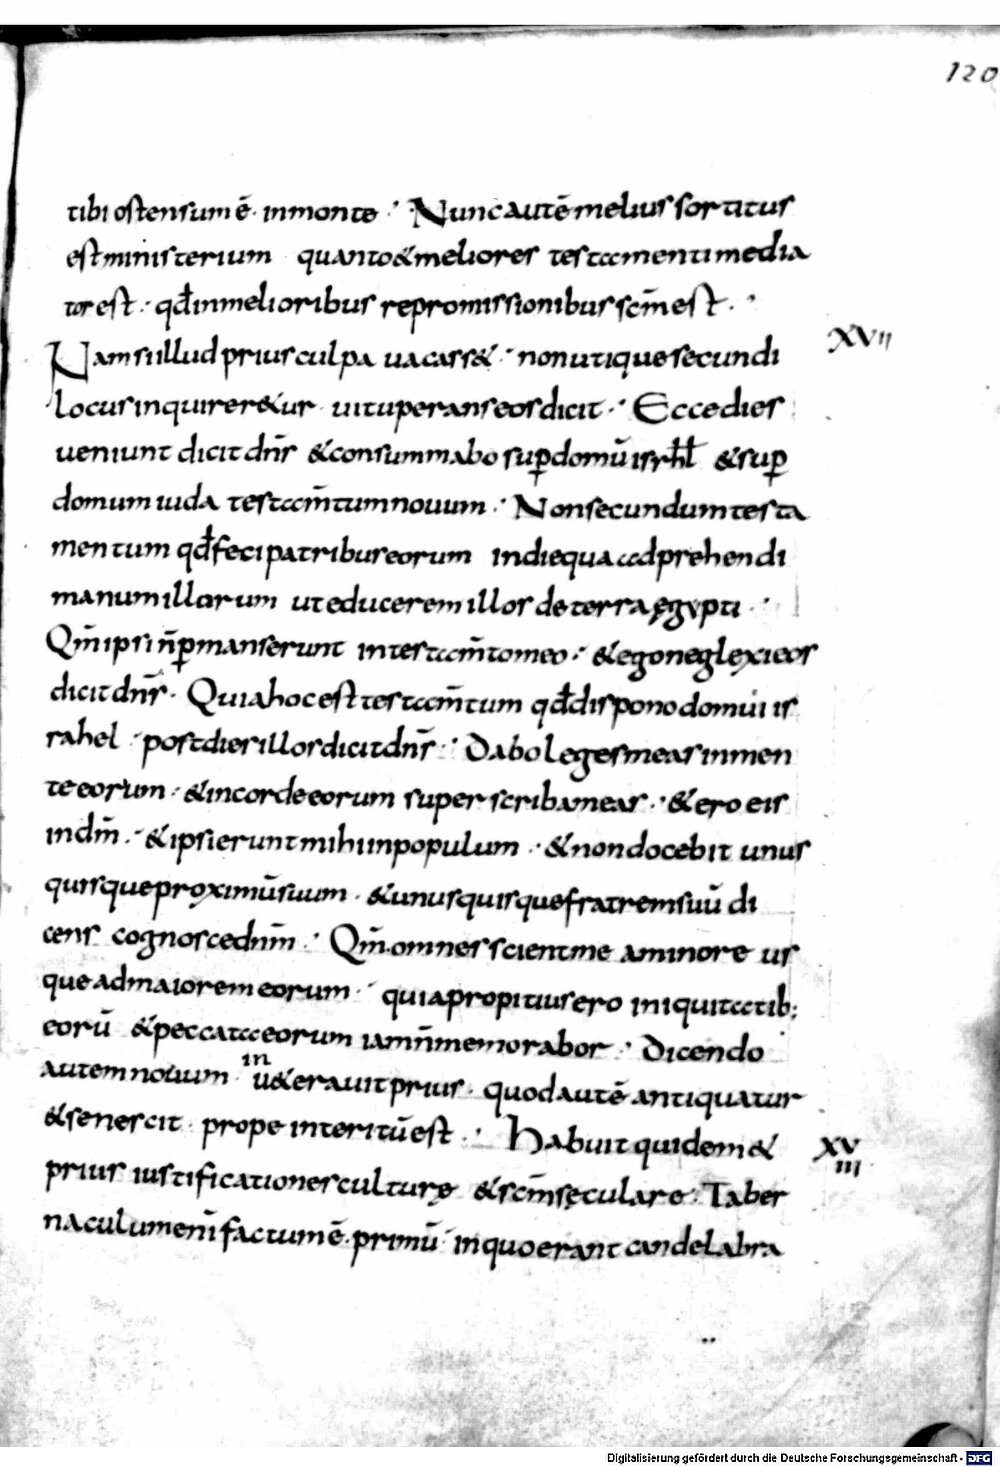 120
tibi ostensum ē · in monte · Nunc autē melius sortitus
est ministerium quanto & melioris testamenti media
tor est · qđ in melioribus repromissionibus scm̄ est ·
XVII
Nam si illud prius culpa uacass& · non utique secundi
locus inquirer&ur · uituperans eos dicit · Ecce dies
ueniunt dicit dn̄s &consummabo sup domū isrhl &sup
domum iuda testam̄tum nouum · Non secundum testa
mentum qđ feci patribus eorum in die qua adprehendi
manum illorum ut educerem illos de terra ęgypti ·
Qm̄ ipsi n̄ pmanserunt in testam̄to meo · &ego neglexi eos
dicit dn̄s · Quia hoc est testam̄tum qđ dispono domui is
rahel · post dies illos dicit dn̄s · Dabo leges meas in men
te eorum · &in corde eorum superscribam eas · &ero eis
in dm̄ · &ipsi erunt mihi in populum · &non docebit unus
quisque proximū suum · &unusquisque fratrem suū di
cens cognosce dnm̄ · Qm̄ omnes scient me a minore us
que ad maiorem eorum · quia propitius ero iniquitatib;
eorū &peccata eorum iam n̄ memorabor · Dicendo
autem nouum · in u&erauit prius · quod autē antiquatur
&senescit · prope interitū est · Habuit quidem &
XV
III
prius iustificationes culturę &scm̄ sęculare · Taber
naculum enī factum ē · primū in quo erant candelabra
Digitalisierung gefördert durch die Deutsche Forschungsgemeinschaft - DFG